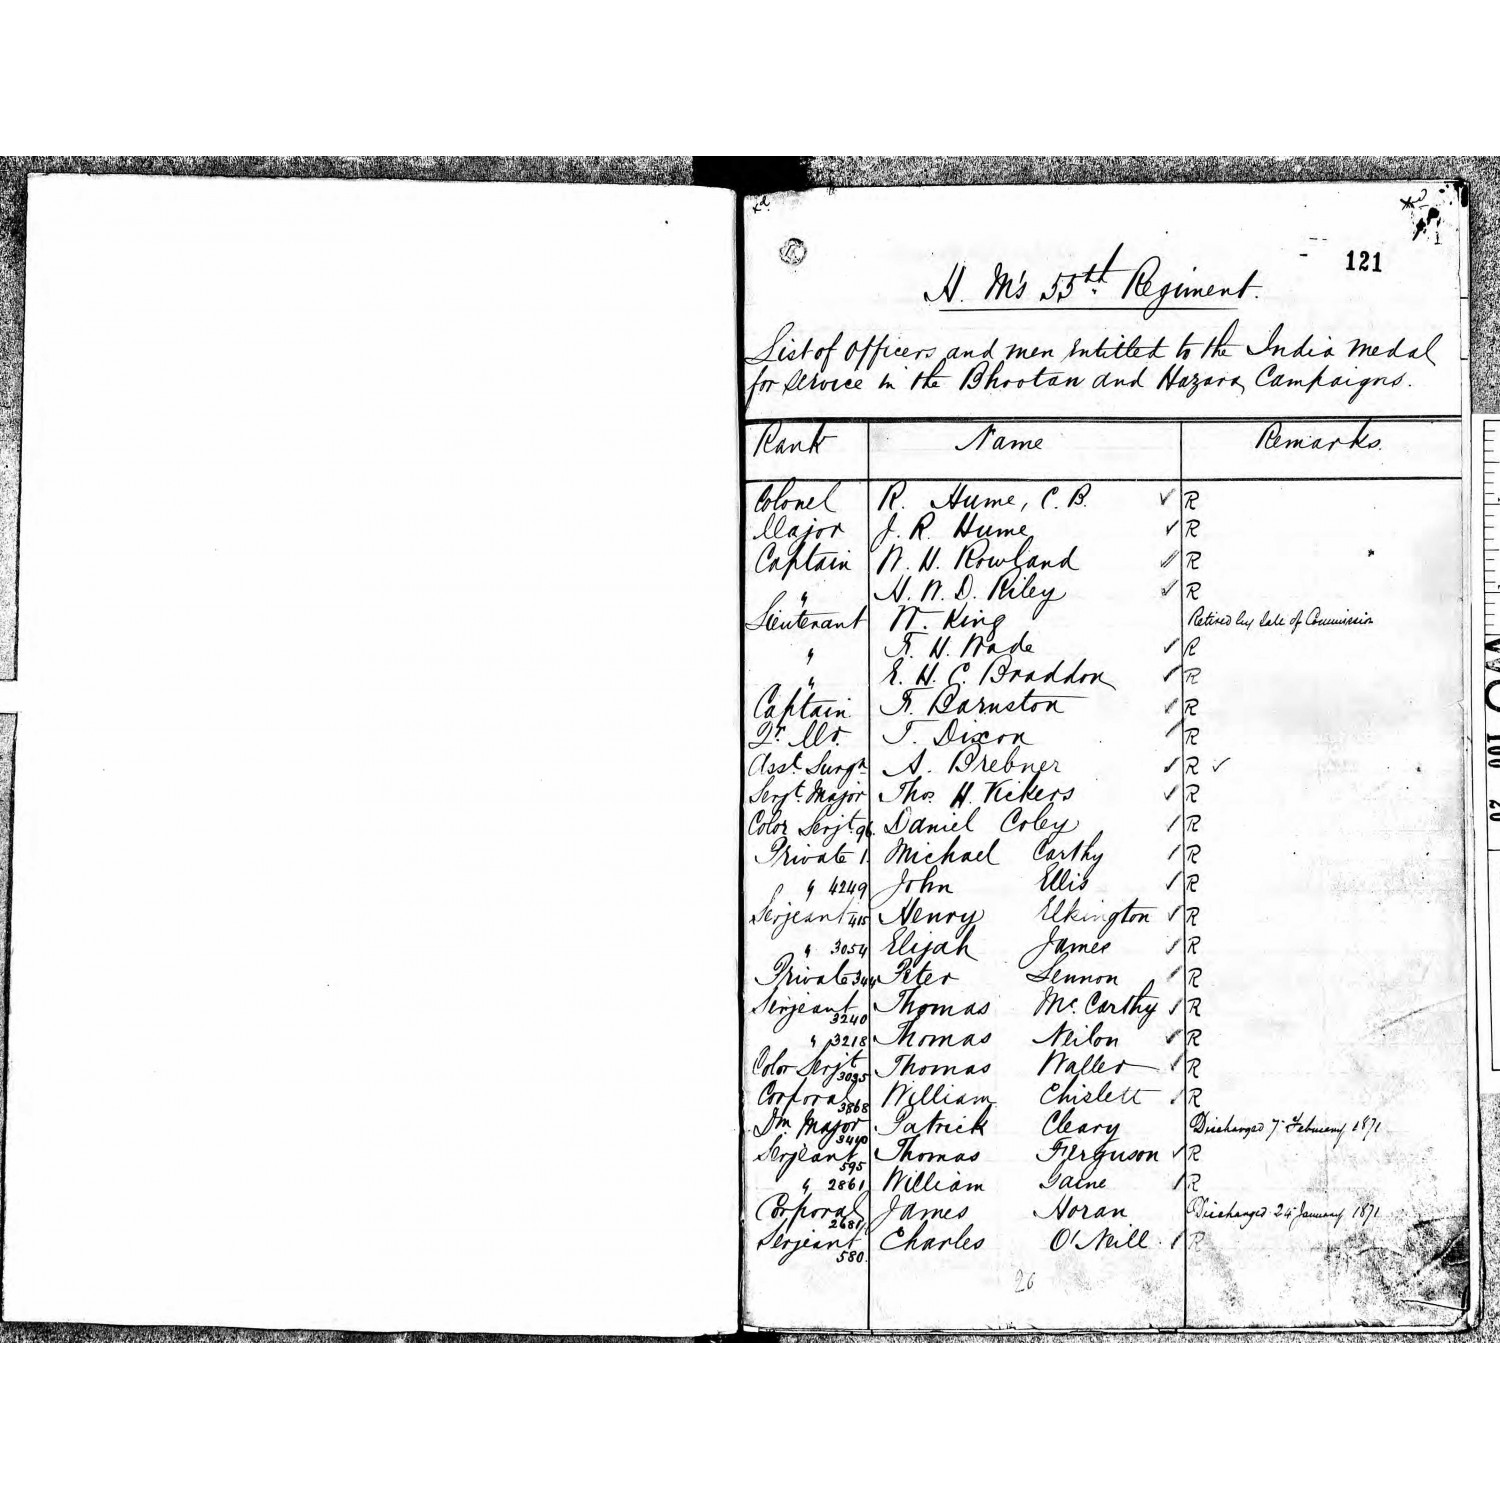 121
H. M's 55th Regiment.
List of Officers and men entitled to the India Medal
for service in the Bhootan and Hazara Campaigns.
Rank Name Remarks.
Colonel R. Hume, C.B. ✓ R
Major J. R. Hume ✓ R
Captain W. H. Rowland ✓ R
" H. W. D. Riley ✓ R
Lieutenant W. King Retired by Sale of Commission
" F. H. Wade ✓ R
" E. H. C. Braddon ✓ R
Captain F. Barnston ✓ R
Qr. Mr. T. Dixon ✓ R
Asst. Surgn A. Brebner ✓ R ✓
Sergt. Major Thos. H. Vickers ✓ R
Color Serjt. 96. Daniel Coley ✓ R
Private 1. Michael Carthy ✓ R
" 4249 John Ellis ✓ R
Serjeant 415 Henry Elkington ✓ R
" 3054 Elijah James ✓ R
Private Peter Lennon ✓ R
Serjeant 3240 Thomas Mc. Carthy ✓ R
" 3218 Thomas Neilon ✓ R
Color Serjt 3035 Thomas Waller ✓ R
Corporal 3868 William Chislett ✓ R
Dm. Major 3440 Patrick Cleary Discharged 7 February 1871
Serjeant 595 Thomas Ferguson ✓ R
" 2861 William Gaine ✓ R
Corporal 2681 James Horan Discharged 24 January 1871
Serjeant 580. Charles O'Neill ✓ R
26